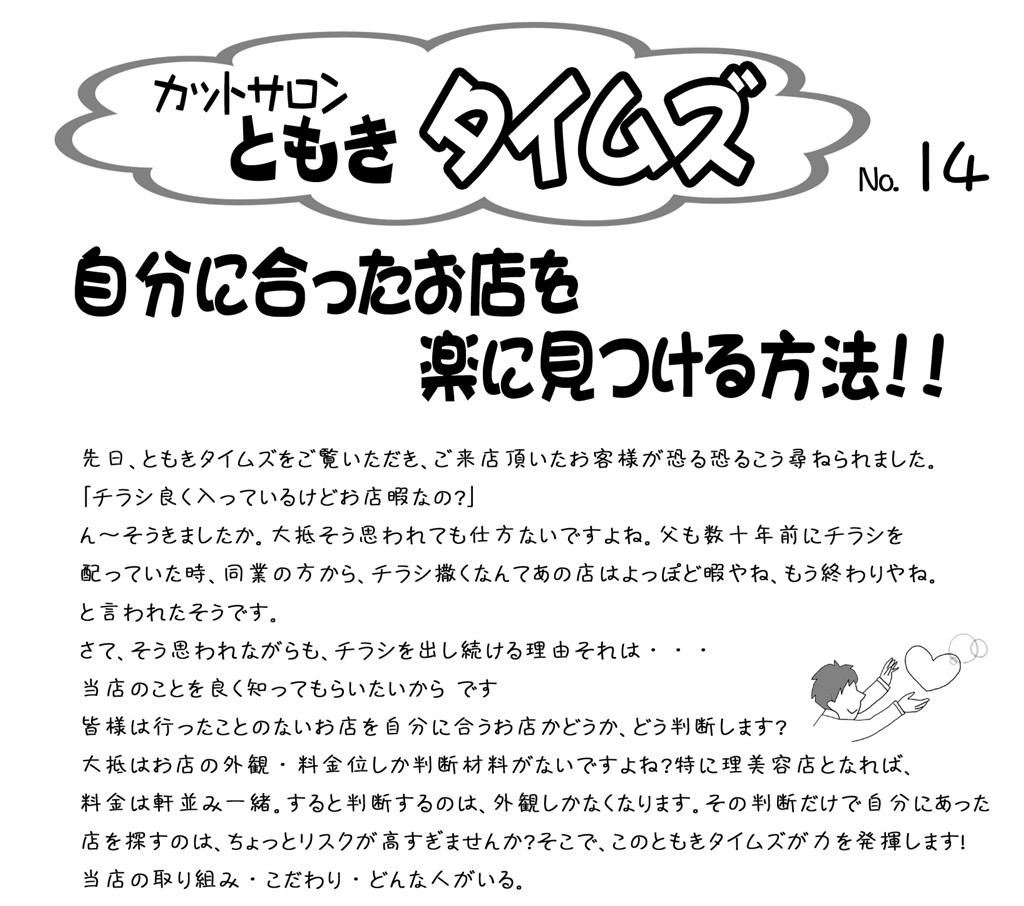 カットサロン
ともき タイムズ
No. 14
自分に合ったお店を
楽に見つける方法!!
先日、ともきタイムズをご覧いただき、ご来店頂いたお客様が恐る恐るこう尋ねられました。
「チラシ良く入っているけどお店暇なの?」
ん～そうきましたか。大抵そう思われても仕方ないですよね。父も数十年前にチラシを
配っていた時、同業の方から、チラシ撒くなんてあの店はよっぽど暇やね、もう終わりやね。
と言われたそうです。
さて、そう思われながらも、チラシを出し続ける理由それは・・・
当店のことを良く知ってもらいたいから です
皆様は行ったことのないお店を自分に合うお店かどうか、どう判断します?
大抵はお店の外観・料金位しか判断材料がないですよね?特に理美容店となれば、
料金は軒並み一緒。すると判断するのは、外観しかなくなります。その判断だけで自分にあった
店を探すのは、ちょっとリスクが高すぎませんか?そこで、このともきタイムズが力を発揮します!
当店の取り組み・こだわり・どんな人がいる。